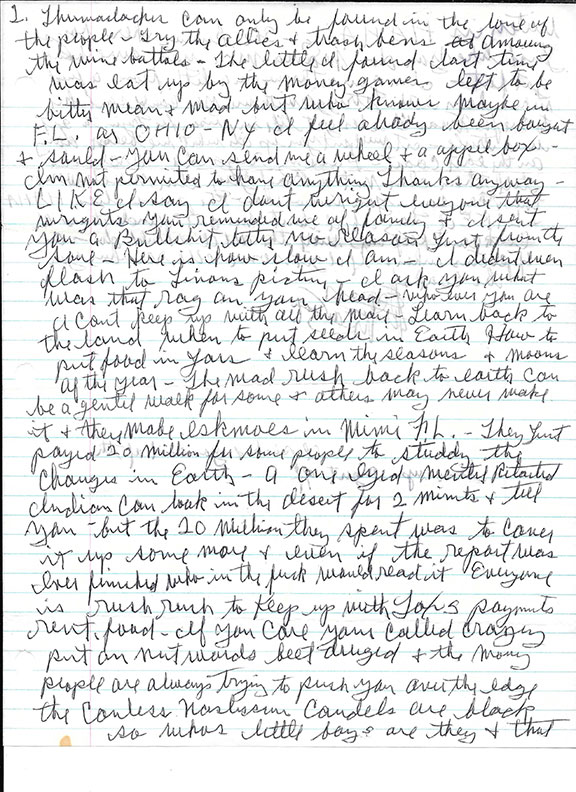 1. Thurmadacher can only be found in the love of
the people - try the allies & trash bens amoung
the wine battals - The little I found last time
was eat up by the money gamer left to be
bitty mean & mad but who knows maybe in
F.L. or OHIO - NY I feel already been bought
& sould - you can send me a wheel & a appel box -
Im not permited to have anything Thanks anyway -
LIKE I say I dont wright everyone that
wrights You remended me of & I sent
you a Bullshit letter no reason just from the
- Here is how slow I am - I didnt even
flash to picture - I ask you what
was that rag on your head - who ever you are
I cant keep up with all the mail Learn back to
the land when to put seeds in Earth & How to
put food in Jars & learn the seasons & moons
of the year - The mad rush back to earth can
be a gentel walk for some & others may never make
it & they make Eskmoes in Mimi FL. - They just
payed 20 million for some people to studdy the
changes in Earth - A one eyed mentel Retarted
Indian can look in the desert for 2 minuts & tell
you - but the 20 million they spent was to cover
it up some more & even if the report was
ever finished who in the fuck would read it Everyone
is rush rush to keep up with payments
rent. food - If you care your called crazzy
put on nut wards beet druged & the money
people are always trying to push you over the edge
the Candels are black
so whos little boys are they & that